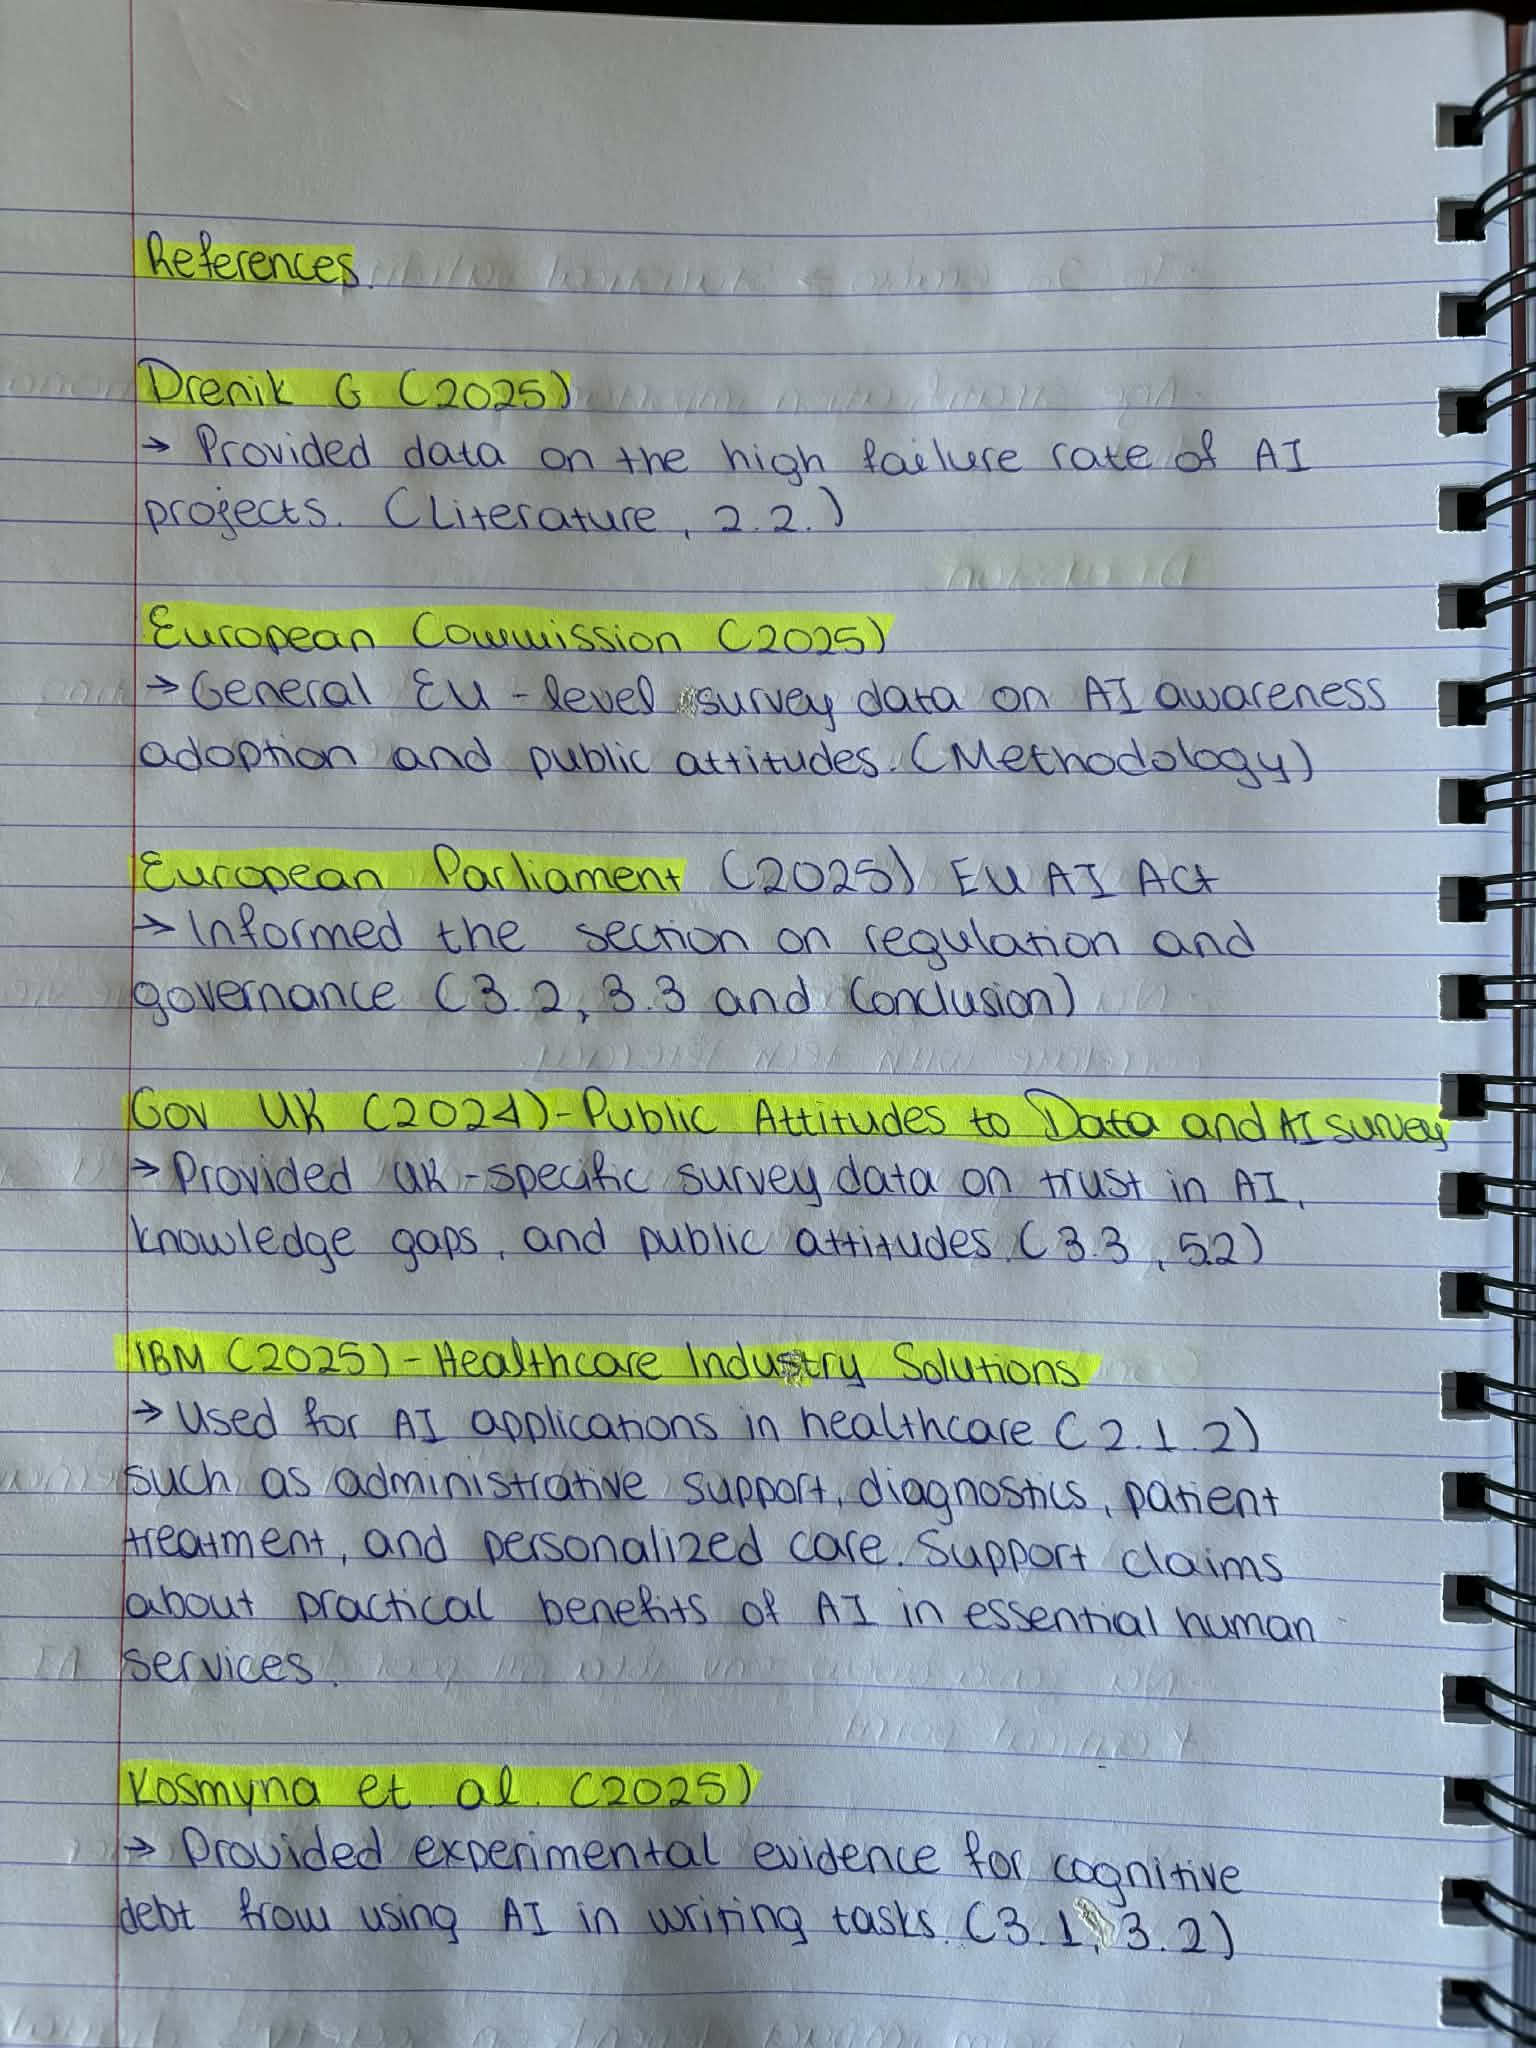 References.
Drenik G (2025)
→ Provided data on the high failure rate of AI
projects. (Literature, 2.2.)
European Commission (2025)
→ General EU-level survey data on AI awareness
adoption and public attitudes. (Methodology)
European Parliament (2025) EU AI Act
→ Informed the section on regulation and
governance (3.2, 3.3 and Conclusion)
Gov UK (2024) - Public Attitudes to Data and AI survey
→ Provided UK-specific survey data on trust in AI,
knowledge gaps, and public attitudes. (3.3, 5.2)
IBM (2025) - Healthcare Industry Solutions
→ Used for AI applications in healthcare (2.1.2)
such as administrative support, diagnostics, patient
treatment, and personalized care. Support claims
about practical benefits of AI in essential human
services.
Kosmyna et al. (2025)
→ Provided experimental evidence for cognitive
debt from using AI in writing tasks. (3.1, 3.2)